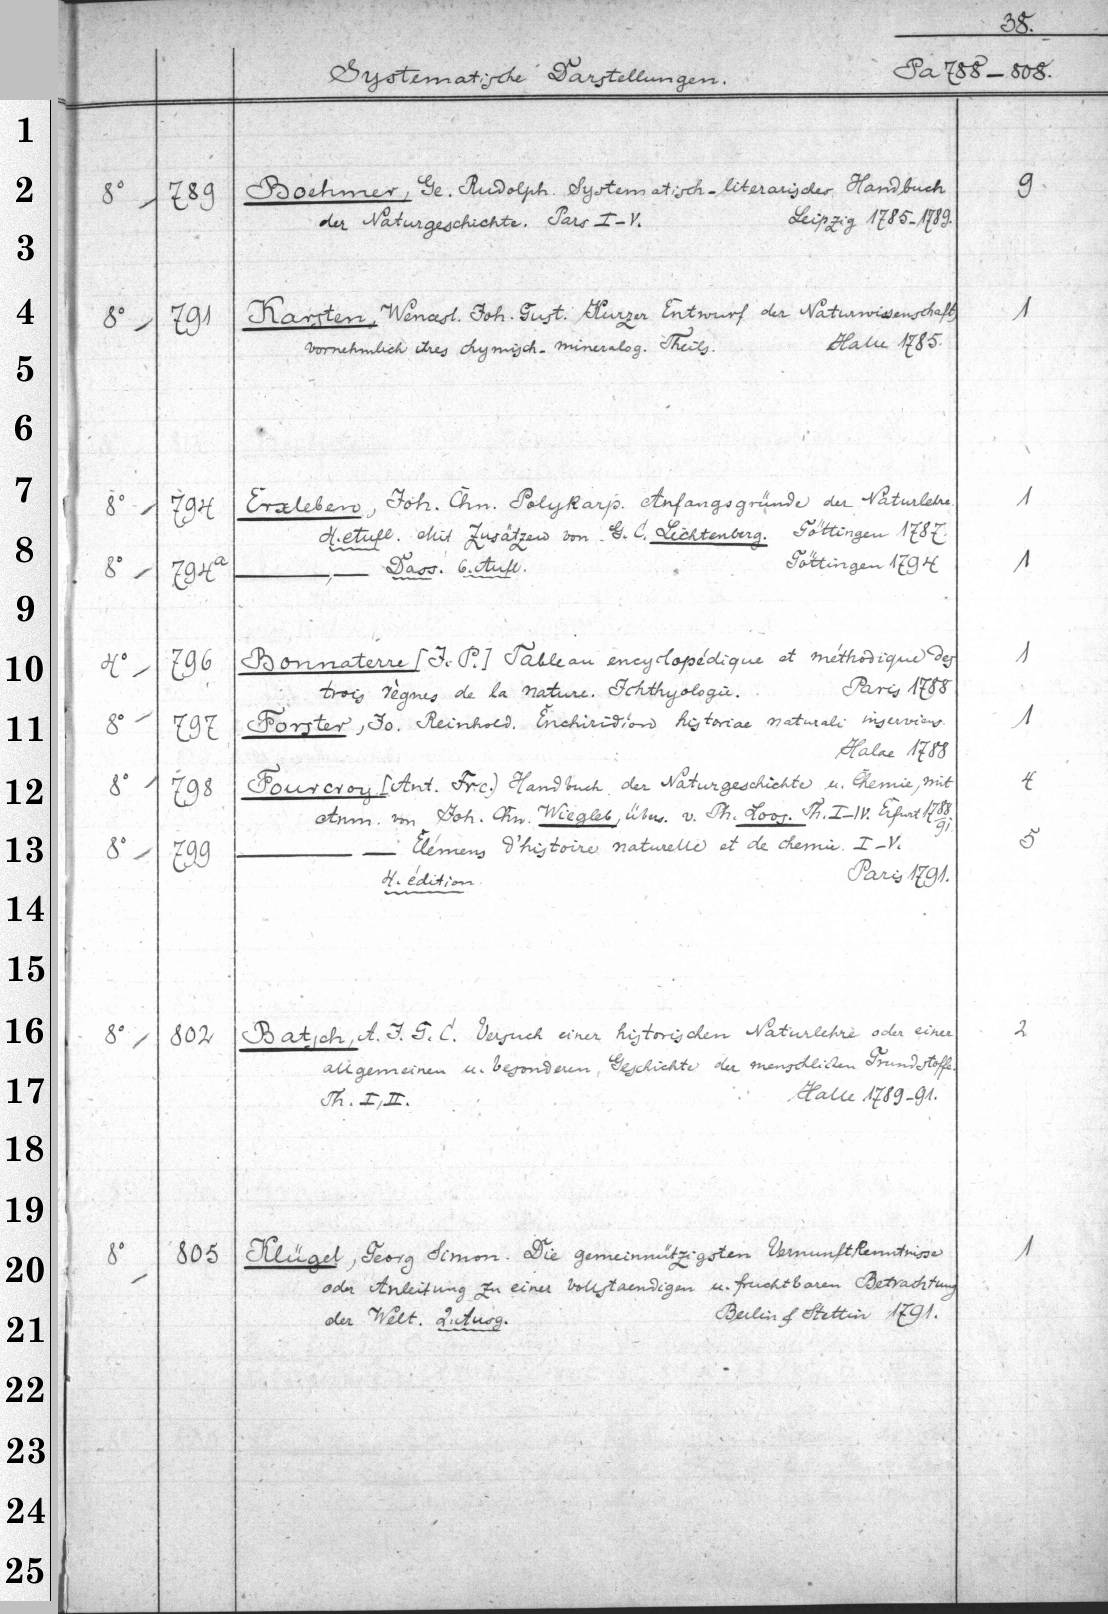 38.
Systematische Darstellungen. Pa 788-808.
1
2 8° 789 Boehmer, Ge. Rudolph. Systematisch-literarisches Handbuch 9
der Naturgeschichte. Pars I-V. Leipzig 1785-1789.
3
4 8° 791 Karsten, Wencesl. Joh. Gust. Kurzer Entwurf der Naturwissenschaft, 1
vornehmlich ihres chymisch-mineralog. Theils. Halle 1785.
5
6
7 8° 794 Erxleben, Joh. Chn. Polykarp. Anfangsgründe der Naturlehre. 1
4. Aufl. Mit Zusätzen von G. C. Lichtenberg. Göttingen 1787.
8 8° 794a ——,— Dass. 6. Aufl. Göttingen 1794 1
9
10 4° 796 Bonnaterre [J. P.] Tableau encyclopédique et méthodique des 1
trois règnes de la nature. Ichthyologie. Paris 1788
11 8° 797 Forster, Jo. Reinhold. Enchiridion historiae naturali inserviens. 1
Halae 1788
12 8° 798 Fourcroy [Ant. Frc.] Handbuch der Naturgeschichte u. Chemie, mit 4
Anm. von Joh. Chn. Wiegleb, übers. v. Ph. Loos. Th. I-IV. Erfurt 1788
91
13 8° 799 —— — Élémens d'histoire naturelle et de chemie. I-V. 5
4. édition. Paris 1791.
14
15
16 8° 802 Batsch, A. J. G. C. Versuch einer historischen Naturlehre oder einer 2
allgemeinen u. besonderen Geschichte der menschlichen Grundstoffe.
17 Th. I, II. Halle 1789-91.
18
19
20 8° 805 Klügel, Georg Simon. Die gemeinnützigsten Vernunftkenntnisse 1
oder Anleitung zu einer vollstaendigen u. fruchtbaren Betrachtung
21 der Welt. 2. Ausg. Berlin & Stettin 1791.
22
23
24
25